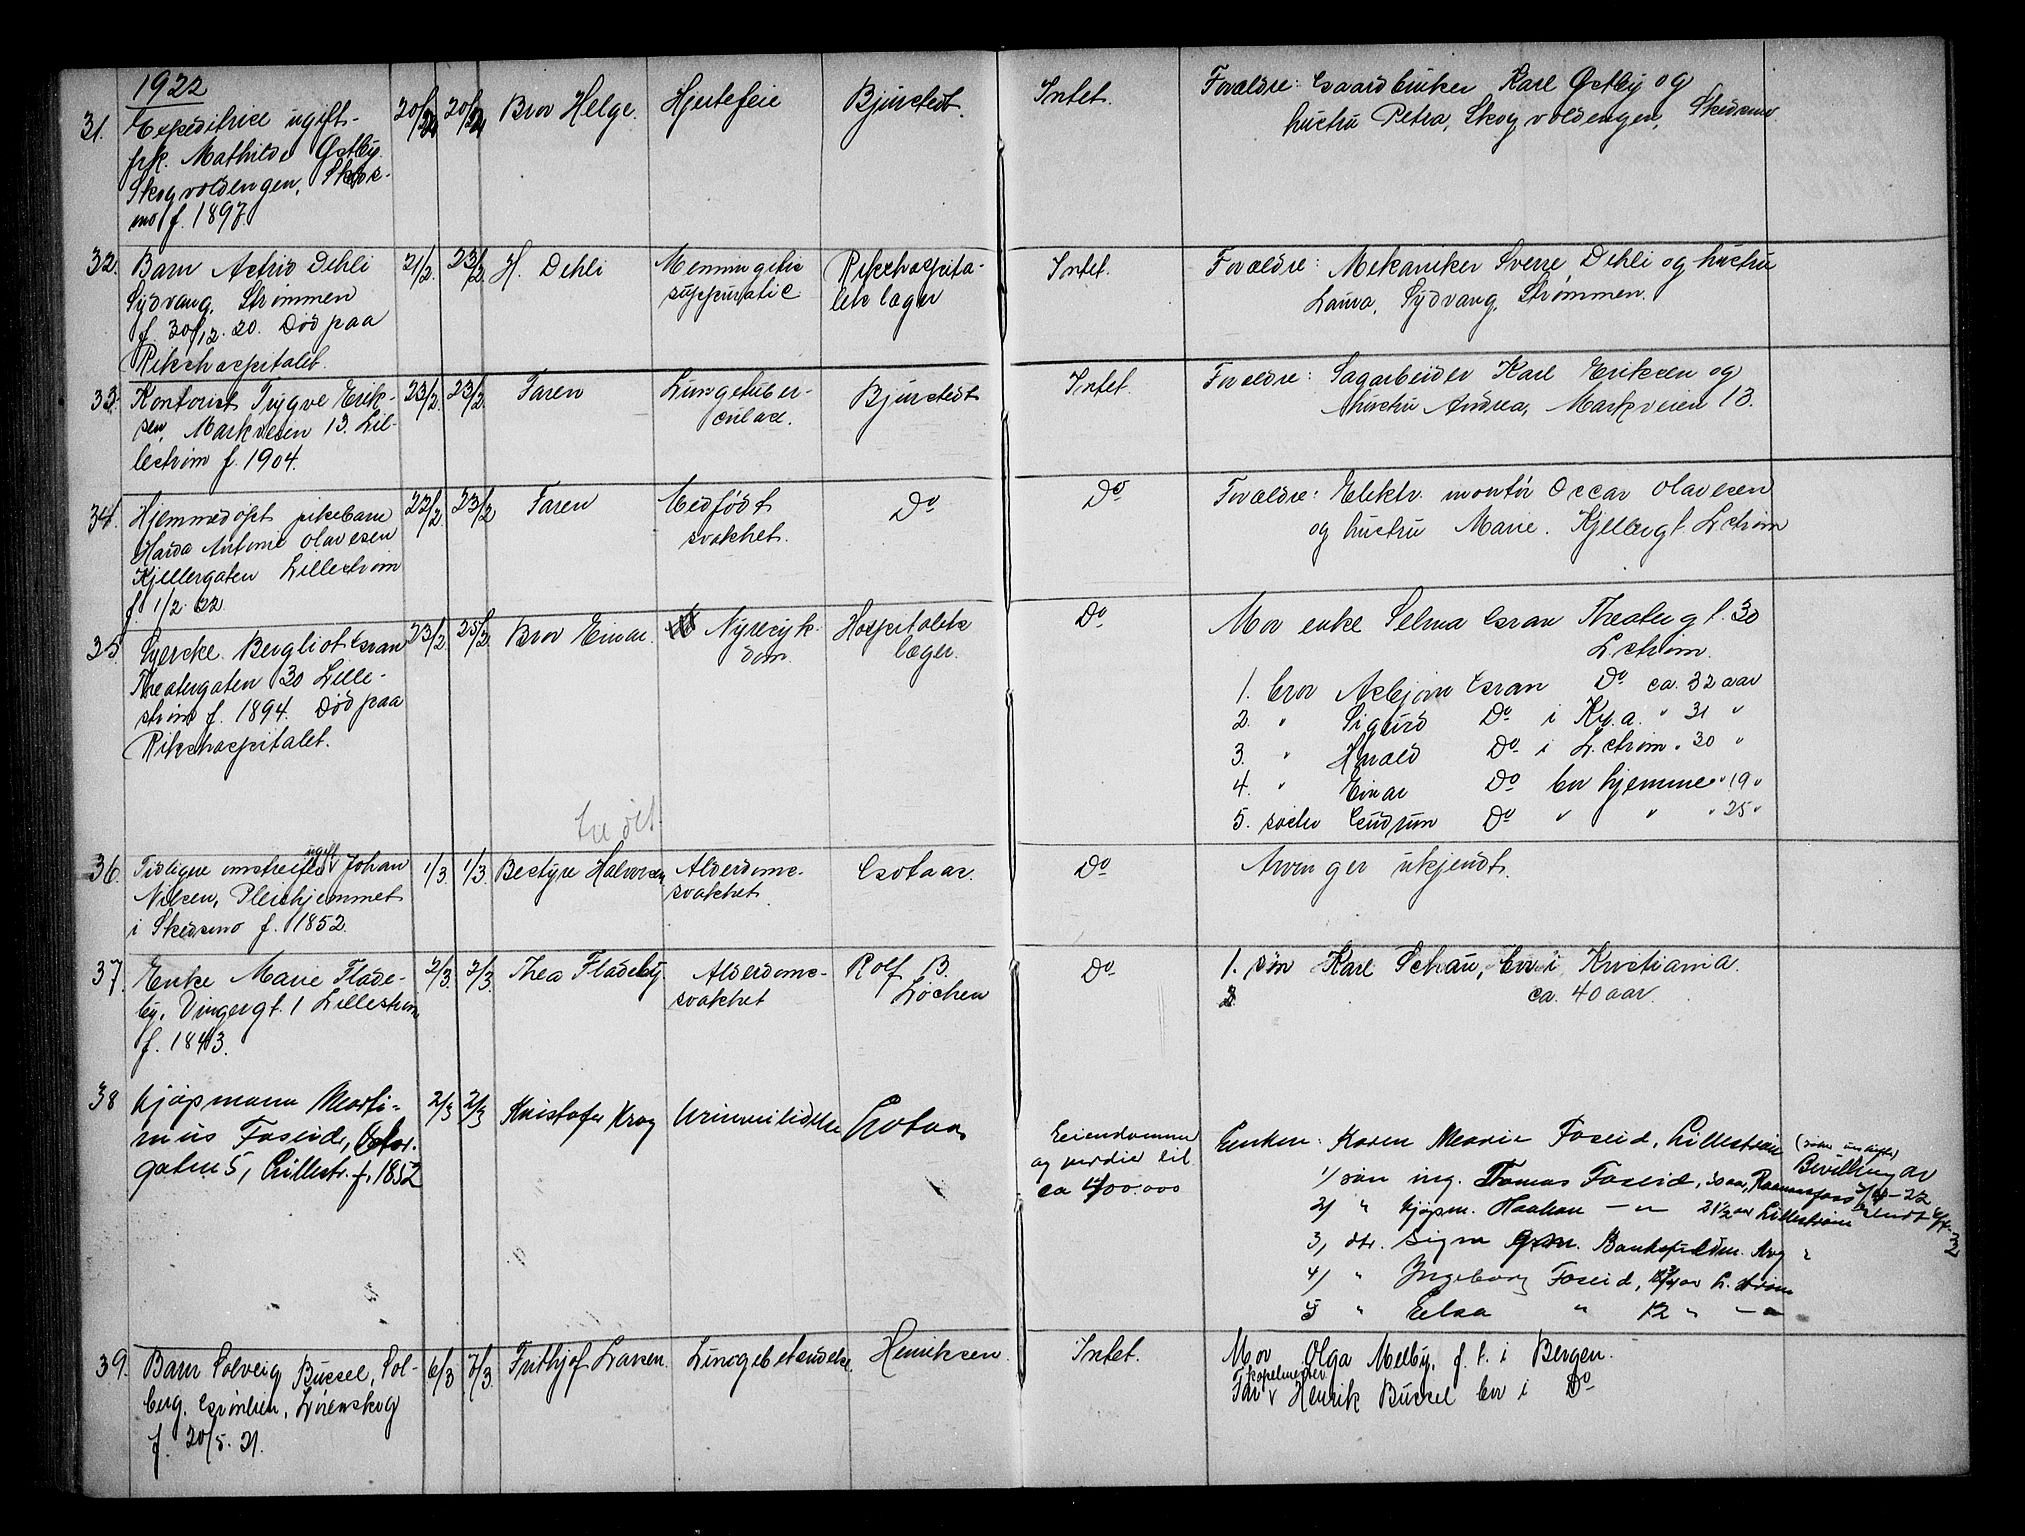 1922
31. Expeditrice ugift
frk. Mathilde Østby.
Skogvoldengen, Skeds-
mo f. 1897.
20/2 20/2 Bror Helge. Hjertefeil Bjursted. Intet.
Forældre: Gaardbruker Karl Østby og
hustru Petra, Skogvoldengen, Skedsmo
32. Barn Astrid Dehli
Sydvang, Strømmen
f. 30/12. 20. Død paa
Rikshospitalet.
21/2. 23/2. H. Dehli Menningitis
suppurativ Rikshospita-
lets læger Intet.
Forældre: Mekaniker Sverre Dehli og hustru
Laura, Sydvang, Strømmen.
33. Kontorist Trygve Erik-
sen, Markveien 13. Lil-
lestrøm f. 1904.
23/2. 23/2. Faren Lungetuber-
culose. Bjursted Intet.
Forældre: Sagarbeider Karl Eriksen og
hustru Andrea, Markveien 13.
34. Hjemmedøpt pikebarn
Harda Antonie Olavesen
Kjellergaten Lillestrøm
f 1/2. 22.
22/2 23/2 Faren Medfødt
svakhet. Do Do
Forældre: Elektr. montør Oscar Olavesen
og hustru Marie. Kjellergt. L.strøm
35. Syerske Bergliot Gran
Theatergaten 30 Lille-
strøm f. 1894. Død paa
Rikshospitalet.
23/2. 25/2. Bror Einar. Nyresyk-
dom. Hospitalets
læger. Do
Mor enke Selma Gran Theatergt. 30
L.strøm.
1. bror Asbjørn Gran Do ca. 32 aar
2. " Sigurd Do i Kr.a. " 31 "
3. " Harald Do i L.strøm " 30 "
4. " Einar Do bor hjemme " 19 "
5. søster Gudrun Do " " " 25 "
36. Tidligere omstreifer ugift Johan
Nilsen, Pleiehjemmet
i Skedsmo f. 1852.
1/3. 1/3. Bestyr. Halvorsen Alderdoms-
svakhet. Gotaas. Do
Arvinger ukjendt.
37. Enke Marie Flade-
by, Vingergt. 1 Lillestrøm
f. 1843.
2/3. 2/3. Thea Fladeby Alderdoms-
svakhet Rolf B.
Løchen Do
1. søn Karl Schau, bor i Kristiania.
2 ca. 40 aar.
38 Kjøpmann Marti-
nius Foseid, Elvor.
gaten 5, Lillestr. f. 1852
2/3 2/3 Kristofer Krog Urinveilidelse Gotaas
Eiendomme
og verdie til
ca 400.000
Enken: Karen Marie Foseid, Lillestrøm
1/ søn ing. Tomas Foseid, Raanaasfoss
2/ " kjøpm. Haakon — " — 21 1/2 aar Lillestrøm
3, dtr. Signe Bankfuldm. Krog "
4) " Ingeborg Foseid, L.strøm
5 " Elsa " 12 " — "
Bevilling av
39. Barn Solveig Bussel, Sol-
berg, Grønlien, Lørenskog
f. 20/5. 21.
6/3 7/3. Frithjof Larsen. Lungebetendelse. Henriksen. Intet.
Mor Olga Melby, f. t. i Bergen.
Far kapelmester Henrik Bussel bor i Do